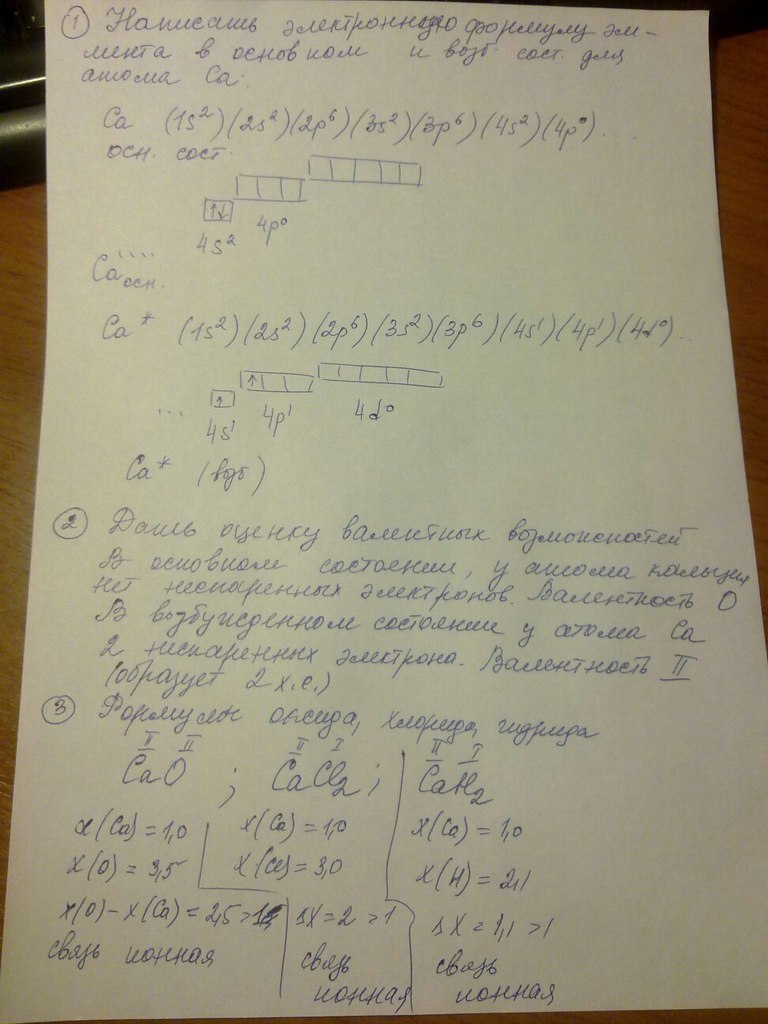 ① Написать электронную формулу эле-
мента в основном и возб. сост. для
атома Ca.
Ca (1s²)(2s²)(2p⁶)(3s²)(3p⁶)(4s²)(4p⁰)....
осн. сост.
↑↓
4s² 4p⁰
....
Ca осн.
Ca* (1s²)(2s²)(2p⁶)(3s²)(3p⁶)(4s¹)(4p¹)(4d⁰)...
↑ ↑
... 4s¹ 4p¹ 4d⁰
Ca* (возб)
② Дать оценку валентных возможностей
В основном состоянии, у атома кальция
нет неспаренных электронов. Валентность 0
В возбужденном состоянии у атома Ca
2 неспаренных электрона. Валентность II
(образует 2 х.с.)
③ Формулы оксида, хлорида, гидрида
II II II I II I
CaO ; CaCl₂ ; CaH₂
x(Ca) = 1,0 x(Ca) = 1,0 x(Ca) = 1,0
x(O) = 3,5 x(Cl) = 3,0 x(H) = 2,1
x(O) - x(Ca) = 2,5 > 1 ΔX = 2 > 1 ΔX = 1,1 > 1
связь ионная связь связь
ионная ионная